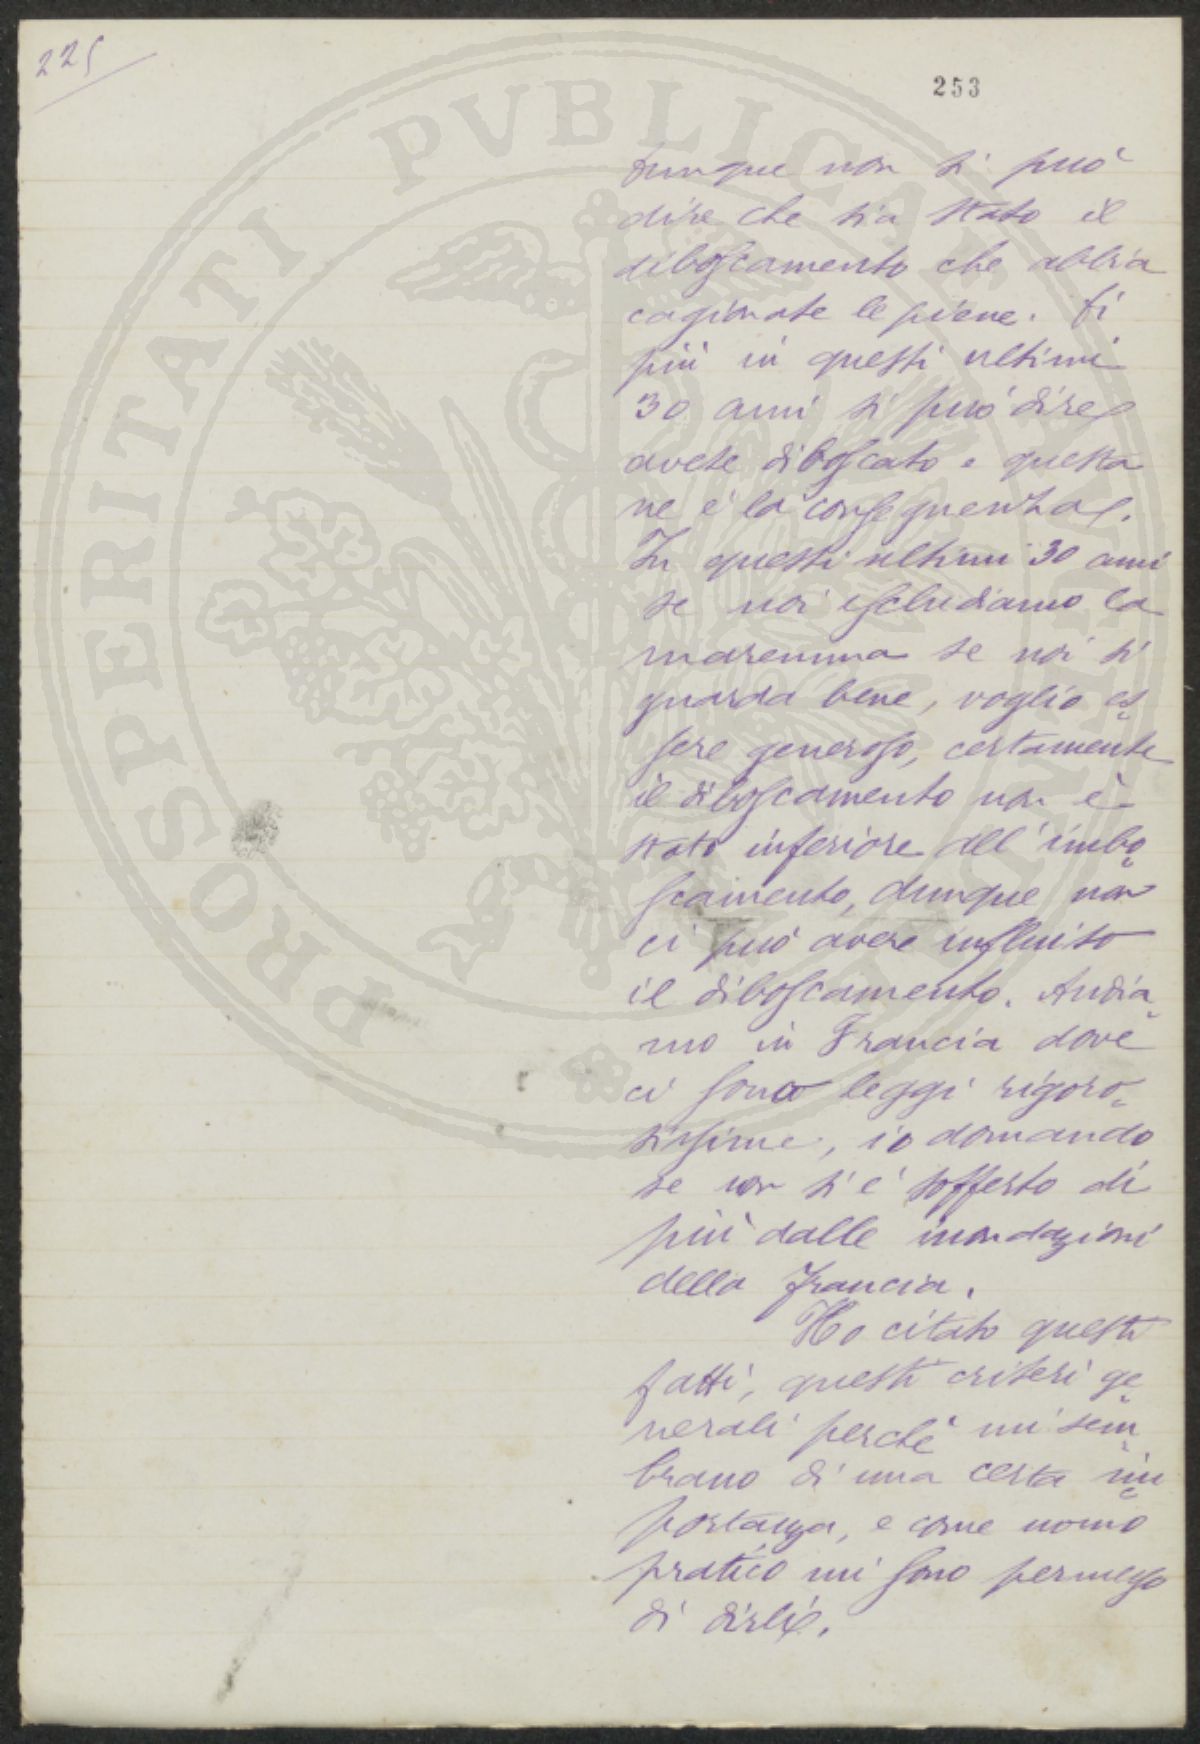 225
253
dunque non si può
dire che sia stato il
diboscamento che abbia
cagionate le piene. Di
più in questi ultimi
30 anni si può dire
avete diboscato e questa
ne è la conseguenza.
In questi ultimi 30 anni
se noi escludiamo la
maremma se noi si
guarda bene, voglio es
sere generoso, certamente
il diboscamento non è
stato inferiore all'imbo
scamento, dunque non
ci può avere influito
il diboscamento. Andia
mo in Francia dove
ci sono leggi rigoro
sissime, io domando
se non si è sofferto di
più dalle inondazioni
della Francia.
Ho citato questi
fatti, questi criteri ge
nerali perchè mi sem
brano di una certa im
portanza, e come uomo
pratico mi sono permesso
di dirli.
PROSPERITATI PVBLICAE AVGENDAE